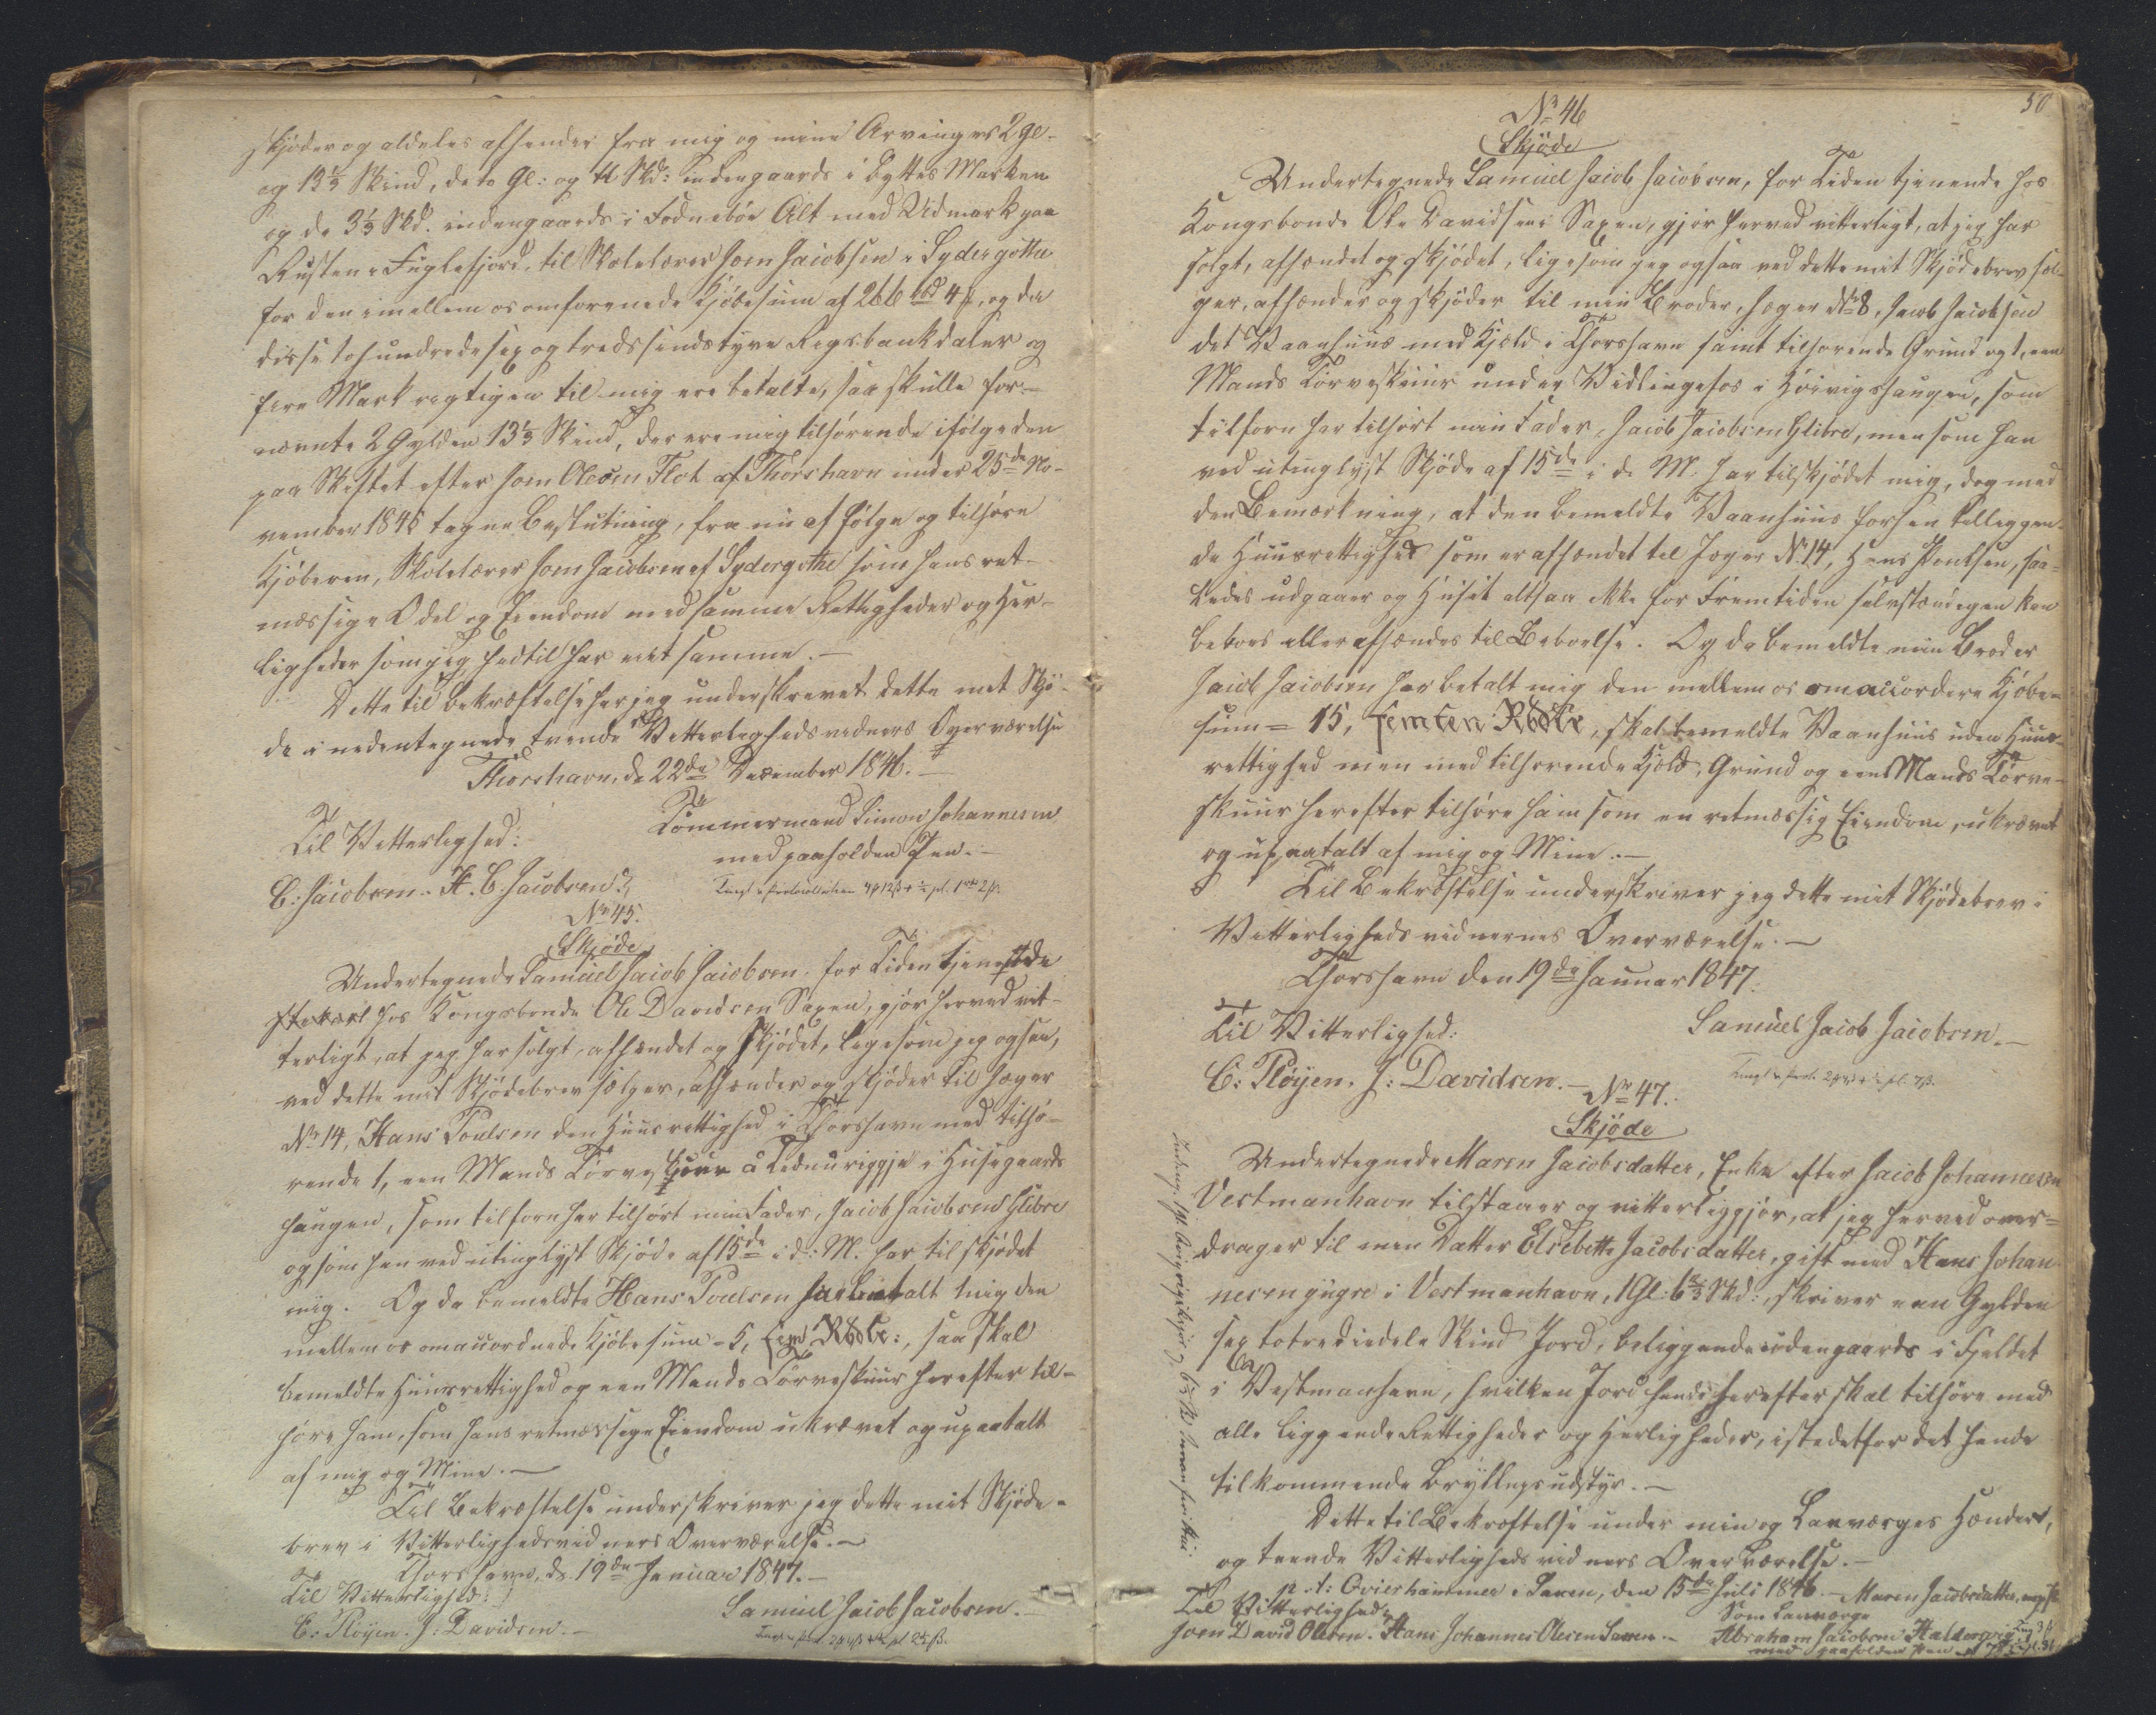 skjøder og aldeles afhender fra mig og mine Arvinger 2 Gl.
og 13 1/3 Skind, de to Gl: og 10 Skd: indengaards i Byttes Marken
og de 3 1/3 Skd. indengaards i Todnebøe Alt med Udmark paa
Rusten i Fuglefjord, til Skolelærer Joen Jacobsen i Sydergøthe
for den imellem os omforenede Kjøbesum af 266 rbd 4 , og da
disse tohundrede sex og tredssindstyve Rigsbankdaler og
fire Mark rigtigen til mig ere betalte, saa skulle for-
nævnte 2 Gylden 13 1/3 Skind, der ere mig tilhørende ifølge den
paa Skiftet efter Joen Olesen Flot af Thorshavn under 25de No-
vember 1845 tagne Beslutning, fra nu af følge og tilhøre
Kjøberen, Skolelærer Joen Jacobsen af Sydergøthe som hans ret-
mæssige Odel og Eiendom med samme Rettigheder og Her-
ligheder som jeg hidtil har eiet samme.—
Dette til Bekræftelse har jeg underskrevet dette mit Skjø-
de i nedentegnede tvende Vitterlighedsvidners Overværelse
Thorshavn, d. 22de December 1846.—
Til Vitterlighed: Tømmermand Simon Johannesen
med paaholden Pen.—
C: Jacobsen. H. C. Jacobsen.
No 45.
Skjøde
Undertegnede Samuel Jacob Jacobsen, for Tiden tjenende
hos Kongsbonde Ole Davidsen Saxen, gjør herved vit-
terligt, at jeg har solgt, afhændet og skjødet, ligesom jeg ogsaa,
ved dette mit Skjødebrev sælger, afhænder og skjøder til Jæger
No 14, Hans Poulsen den Huusrettighed i Thorshavn med tilhø-
rende 1, een Mands Tørveskuur i Husegaards
haugen, som tilforn har tilhørt min Fader, Jacob Jacobsen Glibre
og som han ved utinglyst Skjøde af 15de i d: M. har tilskjødet
mig. Og da bemeldte Hans Poulsen har betalt mig den
mellem os omaccorderede Kjøbesum = 5, fem Rbdlr:, saa skal
bemeldte Huusrettighed og een Mands Tørveskuur herefter til-
høre ham, som hans retmæssige Eiendom ukrævet og upaatalt
af mig og Mine.—
Til Bekræftelse underskriver jeg dette mit Skjøde-
brev i Vitterlighedsvidners Overværelse.—
Thorshavn, d. 19de Januar 1847.—
Til Vitterlighed:
C: Pløyen. J: Davidsen.— Samuel Jacob Jacobsen.—
50
No 46
Skjøde
Undertegnede Samuel Jacob Jacobsen, for Tiden tjenende hos
Kongsbonde Ole Davidsen Saxen, gjør herved vitterligt, at jeg har
solgt, afhændet og skjødet, ligesom jeg ogsaa ved dette mit Skjødebrev sæl-
ger, afhænder og skjøder til min Broder, Jæger No 8, Jacob Jacobsen
det Vaanhuus med Kjeld i Thorshavn samt tilhørende Grund og 1, een
Mands Tørveskuur under Vidlingefos i Hoivigshaugen, som
tilforn har tilhørt min Fader, Jacob Jacobsen Glibre, men som han
ved utinglyst Skjøde af 15de i d. M. har tilskjødet mig, dog med
den Bemærkning, at den bemeldte Vaanhuus forhen tilliggen-
de Huusrettighed som er afhændet til Jæger No 14, Hans Poulsen, saa-
ledes udgaaer og Huset altsaa ikke for Fremtiden selvstændigen kan
beboes eller afhændes til Beboelse. Og da bemeldte min Broder
Jacob Jacobsen har betalt mig den mellem os omaccordere Kjøbe-
sum = 15, femten Rbdlr, skal bemeldte Vaanhuus uden Huus-
rettighed men med tilhørende Kjeld, Grund og een Mands Tørve-
skuur herefter tilhøre ham som en retmæssig Eiendom, ukrævet
og upaatalt af mig og Mine.—
Til Bekræftelse underskriver jeg dette mit Skjødebrev i
Vitterlighedsvidnernes Overværelse.—
Thorshavn den 19de Januar 1847.
Til Vitterlighed: Samuel Jacob Jacobsen.—
C: Pløyen. J: Davidsen.—
No 47.
Skjøde
Undertegnede Maren Jacobsdatter, Enke efter Jacob Johannesen
Vestmanhavn tilstaaer og vitterliggjør, at jeg herved over=
drager til min Datter Elsebette Jacobsdatter, gift med Hans Johan-
nesen yngre i Vestmanhavn, 1 Gl: 6 2/3 Skd:, skriver een Gylden
sex totrediedele Skind Jord, beliggende indengaards i Fjeldet
i Vestmanhavn, hvilken Jord hende herefter skal tilhøre med
alle liggende Rettigheder og Herligheder, istedetfor det hende
tilkommende Bryllupsudstyr.—
Dette til Bekræftelse under min og Laugværges Hænder,
og tvende Vitterligheds vidners Overværelse.—
p. t: Qvierhammer i Saxen, den 15de Juli 1846.— Maren Jacobsdatter,
Til Vitterlighed: Som Laugværge
Joen David Olesen. Hans Johannes Olesen Saxen.— Abraham Jacobsen Haldorsvig
med paaholden Pen